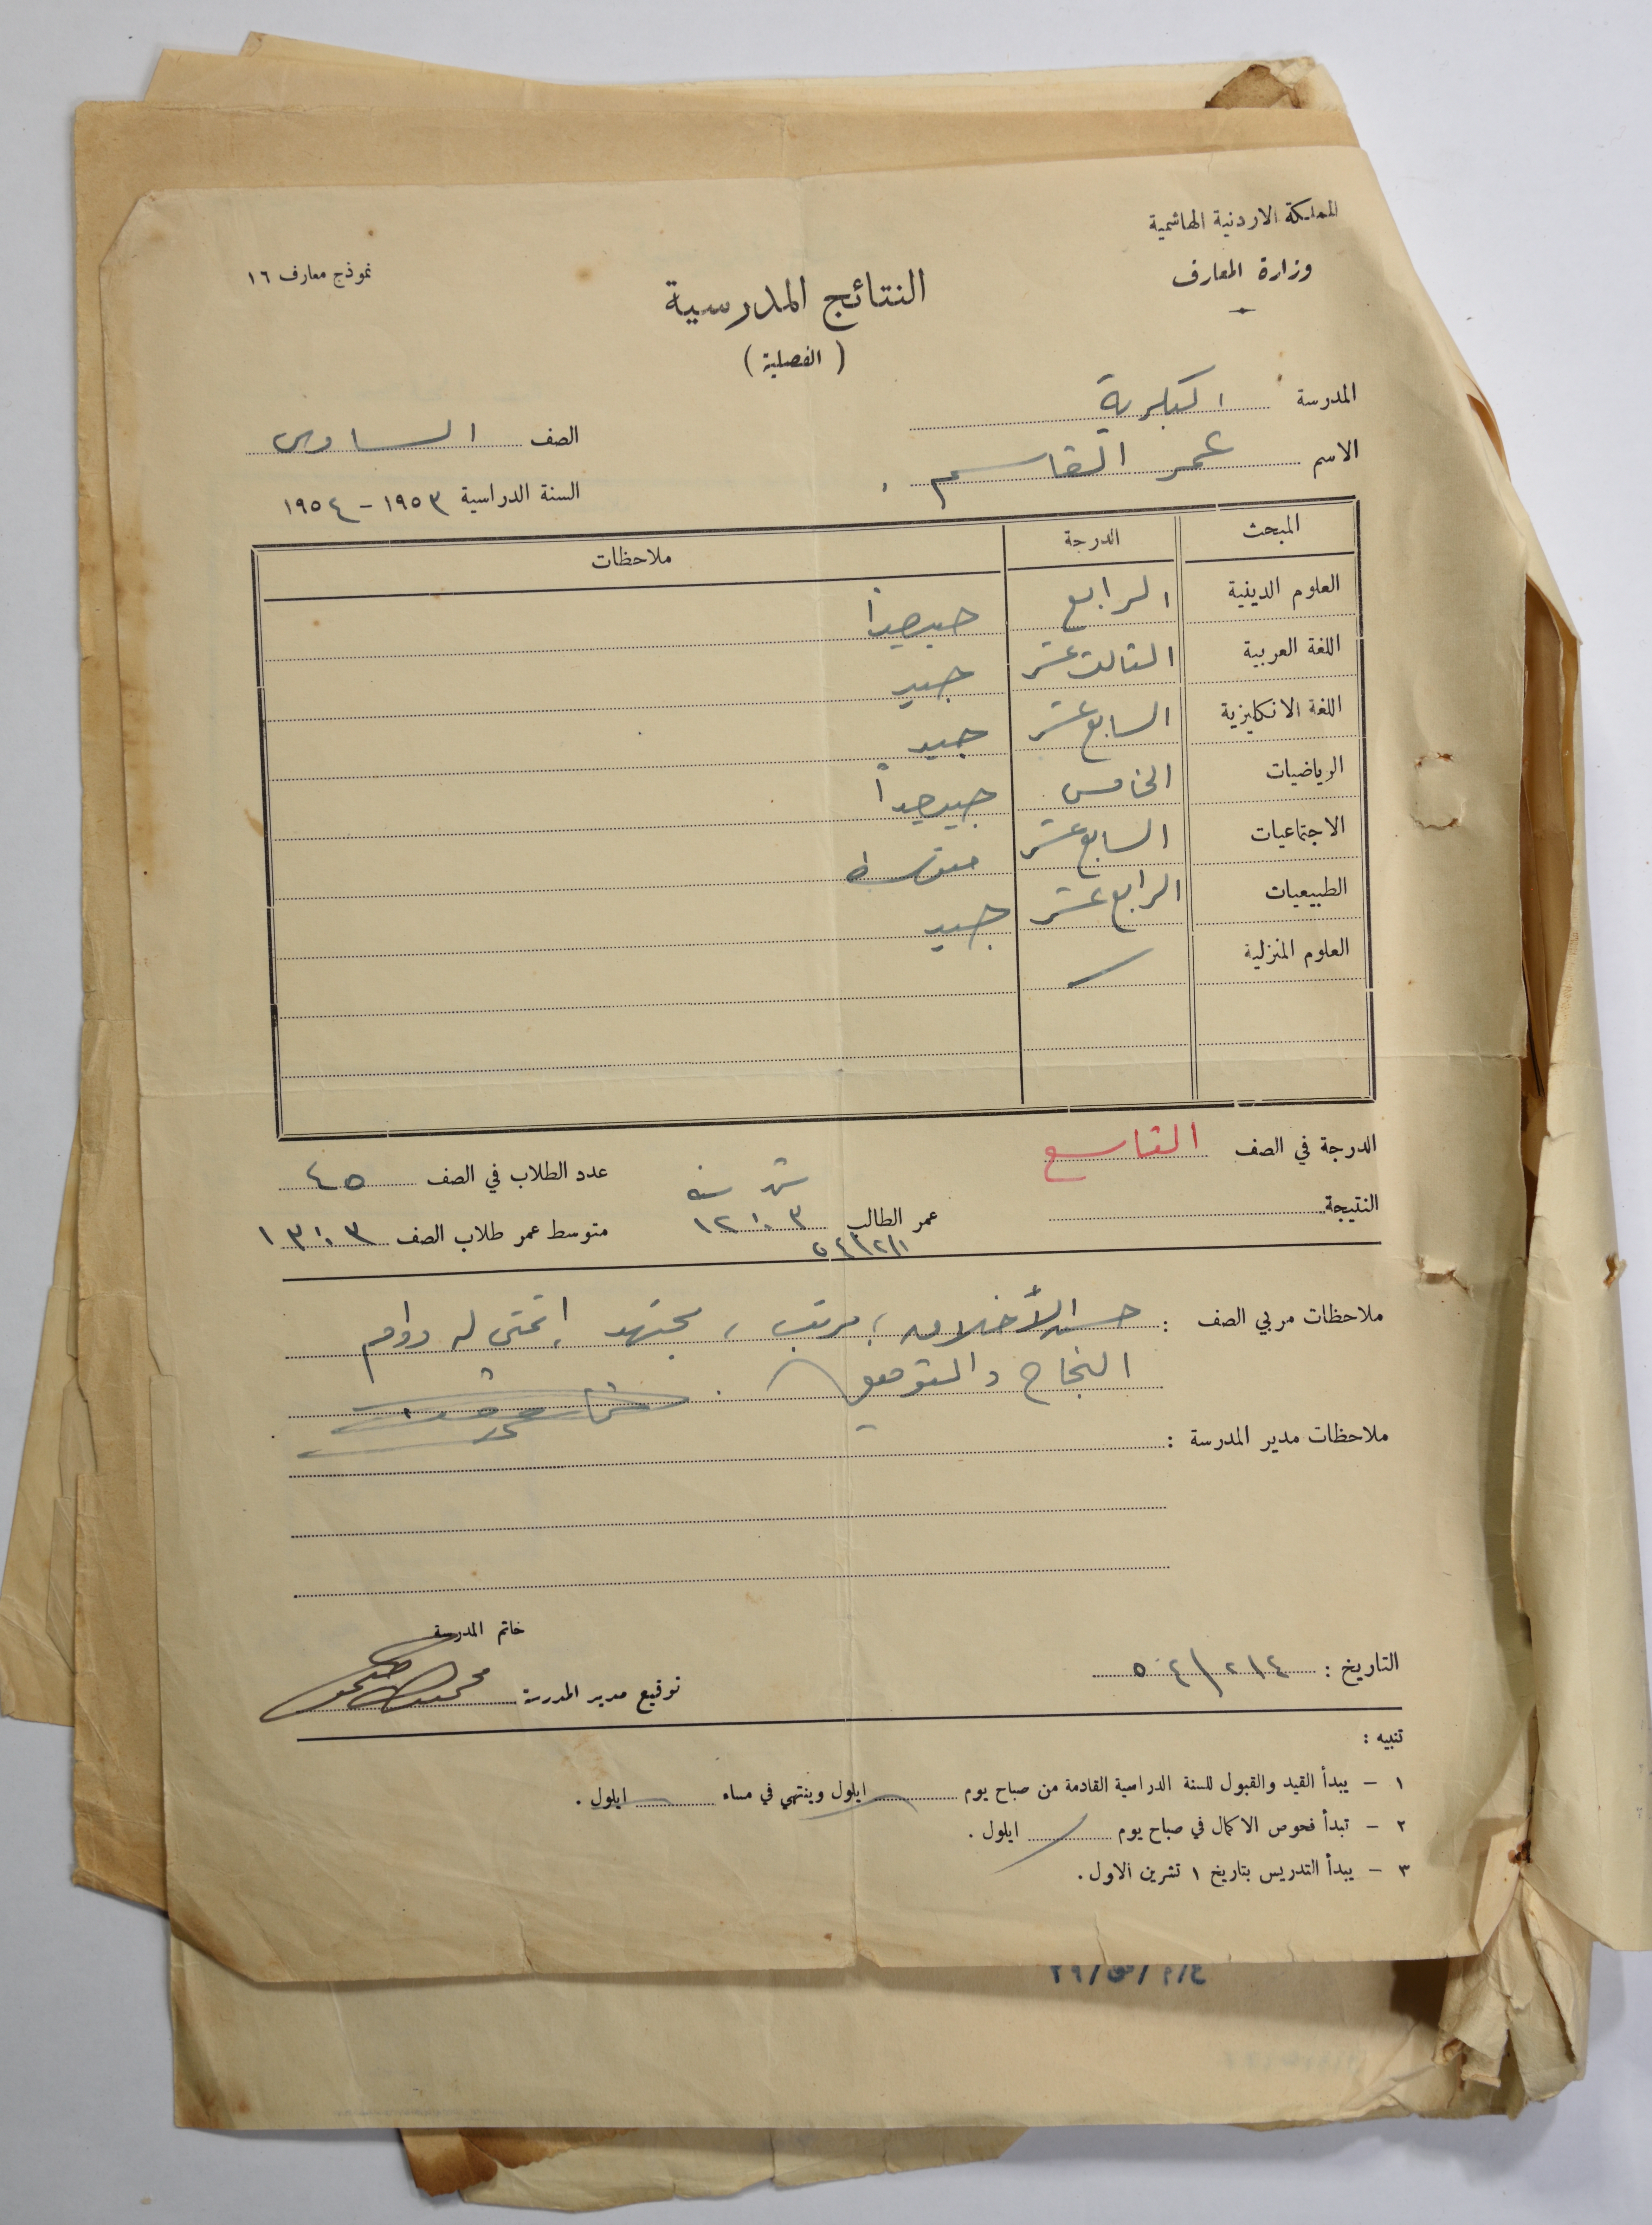 المملكة الاردنية الهاشمية
وزارة المعارف
نموذج معارف ١٦
النتائج المدرسية
( الفصلية )
المدرسة البكرية
الصف السادس
الاسم عمر القاسم
السنة الدراسية ١٩٥٣ - ١٩٥٤
المبحث الدرجة ملاحظات
العلوم الدينية الرابع جيد جداً
اللغة العربية الثالث عشر جيد
اللغة الانكليزية السابع عشر جيد
الرياضيات الخامس جيد جداً
الاجتماعيات السابع عشر متوسط
الطبيعيات الرابع عشر جيد
العلوم المنزلية
الدرجة في الصف التاسع عدد الطلاب في الصف ٤٥
شهر سنة
النتيجة عمر الطالب ٣ ١٢ متوسط عمر طلاب الصف ٣ ١٣
٥٤/٢/١
ملاحظات مربي الصف : حسن الأخلاق ، مرتب ، مجتهد ، اتمنى له دوام
النجاح والتوفيق .
ملاحظات مدير المدرسة :
خاتم المدرسة
التاريخ : ٥٤/٢/٤ توقيع مدير المدرسة
تنبيه :
١ - يبدأ القيد والقبول للسنة الدراسية القادمة من صباح يوم ايلول وينتهي في مساء ايلول .
٢ - تبدأ فحوص الاكمال في صباح يوم ايلول .
٣ - يبدأ التدريس بتاريخ ١ تشرين الاول .